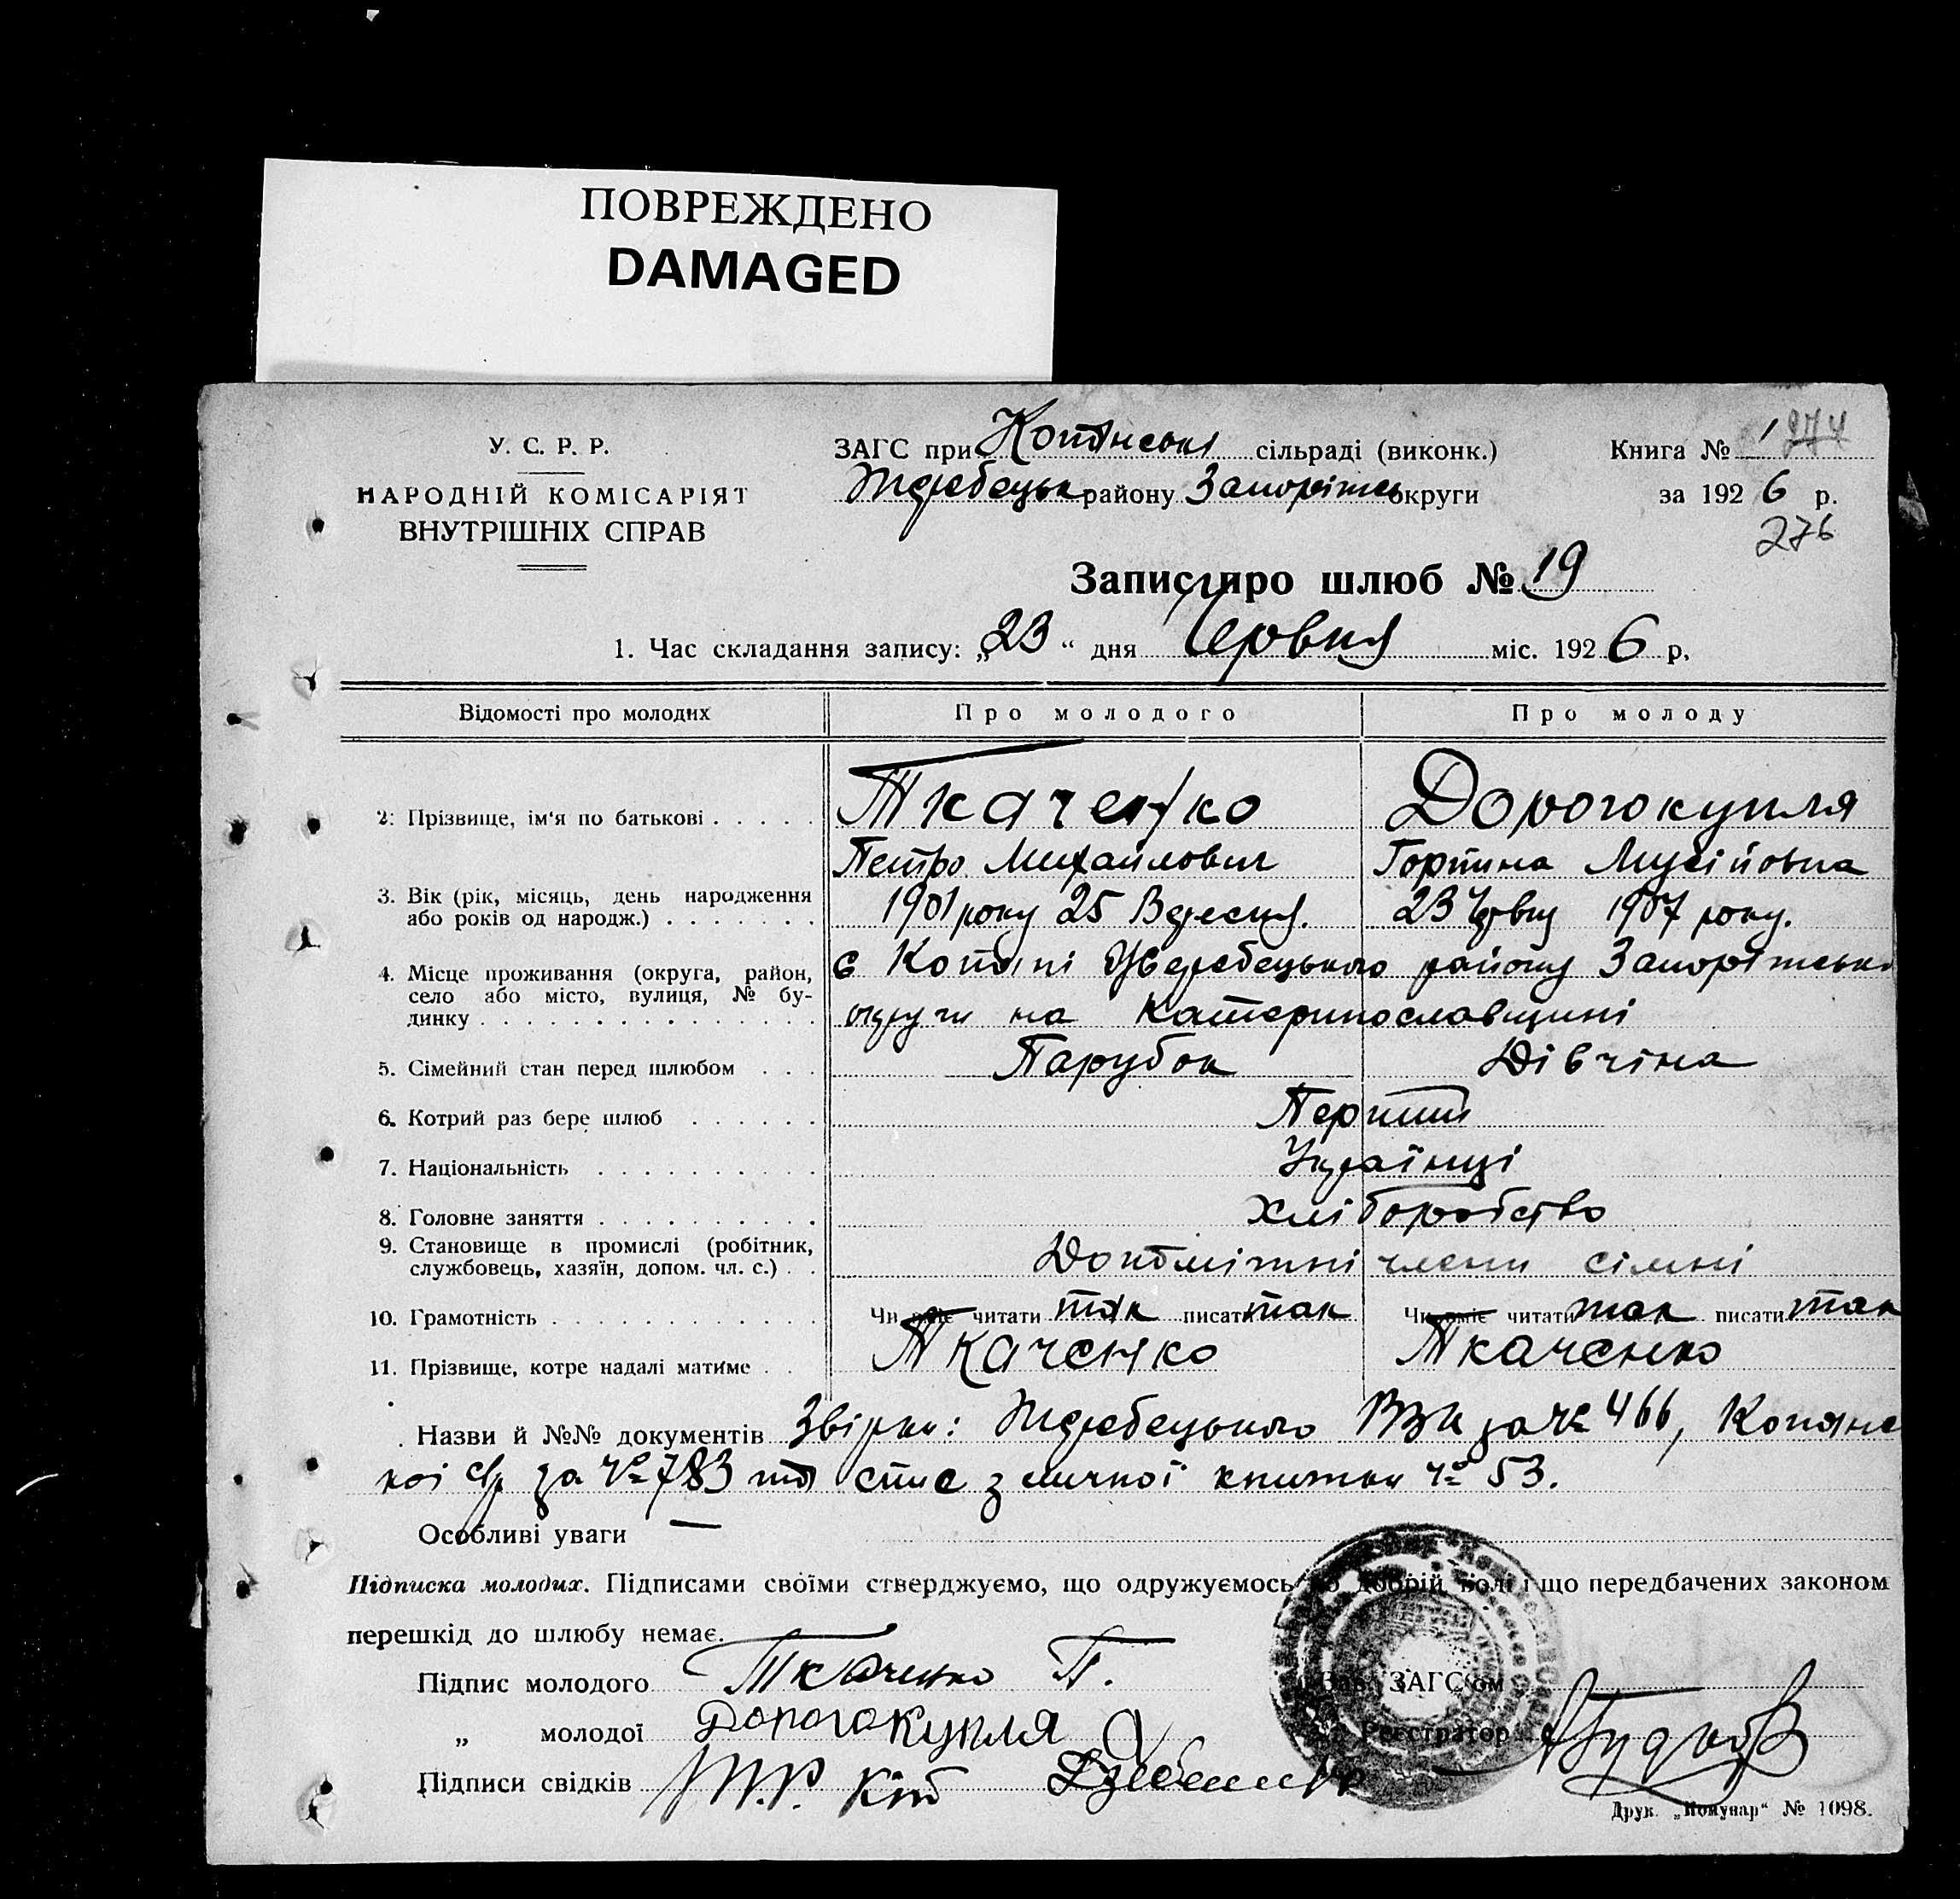 ПОВРЕЖДЕНО
DAMAGED
У. С. Р. Р.
НАРОДНІЙ КОМІСАРІЯТ
ВНУТРІШНІХ СПРАВ
ЗАГС при Копанській сільраді (виконк.)
Жеребецьк району Запоріжсь округи
Книга № 1 274
за 1926 р.
276
Запис про шлюб № 19
1. Час складання запису: „23“ дня Червня міс. 1926 р.
Відомості про молодих Про молодого Про молоду
2. Прізвище, ім'я по батькові Ткаченко Дорогокупля
Петро Михайлович Горпина Мусійовна
3. Вік (рік, місяць, день народження
або років од народж.) 1901 року 25 Вересня. 23 Червня 1907 року.
4. Місце проживання (округа, район,
село або місто, вулиця, № бу-
динку с Копані Жеребецького району Запоріжсько
округи на Катеринославщині
5. Сімейний стан перед шлюбом Парубок Дівчіна
6. Котрий раз бере шлюб Перший
7. Національність Українці
8. Головне заняття Хліборобство
9. Становище в промислі (робітник,
службовець, хазяїн, допом. чл. с.) Допоміжні члени сімні
10. Грамотність Чи вміє читати так писати так Чи вміє читати так писати так
11. Прізвище, котре надалі матиме Ткаченко Ткаченко
Назви й №№ документів Звірки: Жеребецького ВЗК за № 466, Копянс
кої с/р за № 783 та спис земичної книжки № 53.
Особливі уваги —
Підписка молодих. Підписами своїми стверджуємо, що одружуємось по добрій волі і що передбачених законом
перешкід до шлюбу немає.
Підпис молодого Ткаченко П.
„ молодої Дорогокупля
Підписи свідків Кіт
Зав. ЗАГС'ом
Реєстратор
Друк. „Комунар“ № 1098.